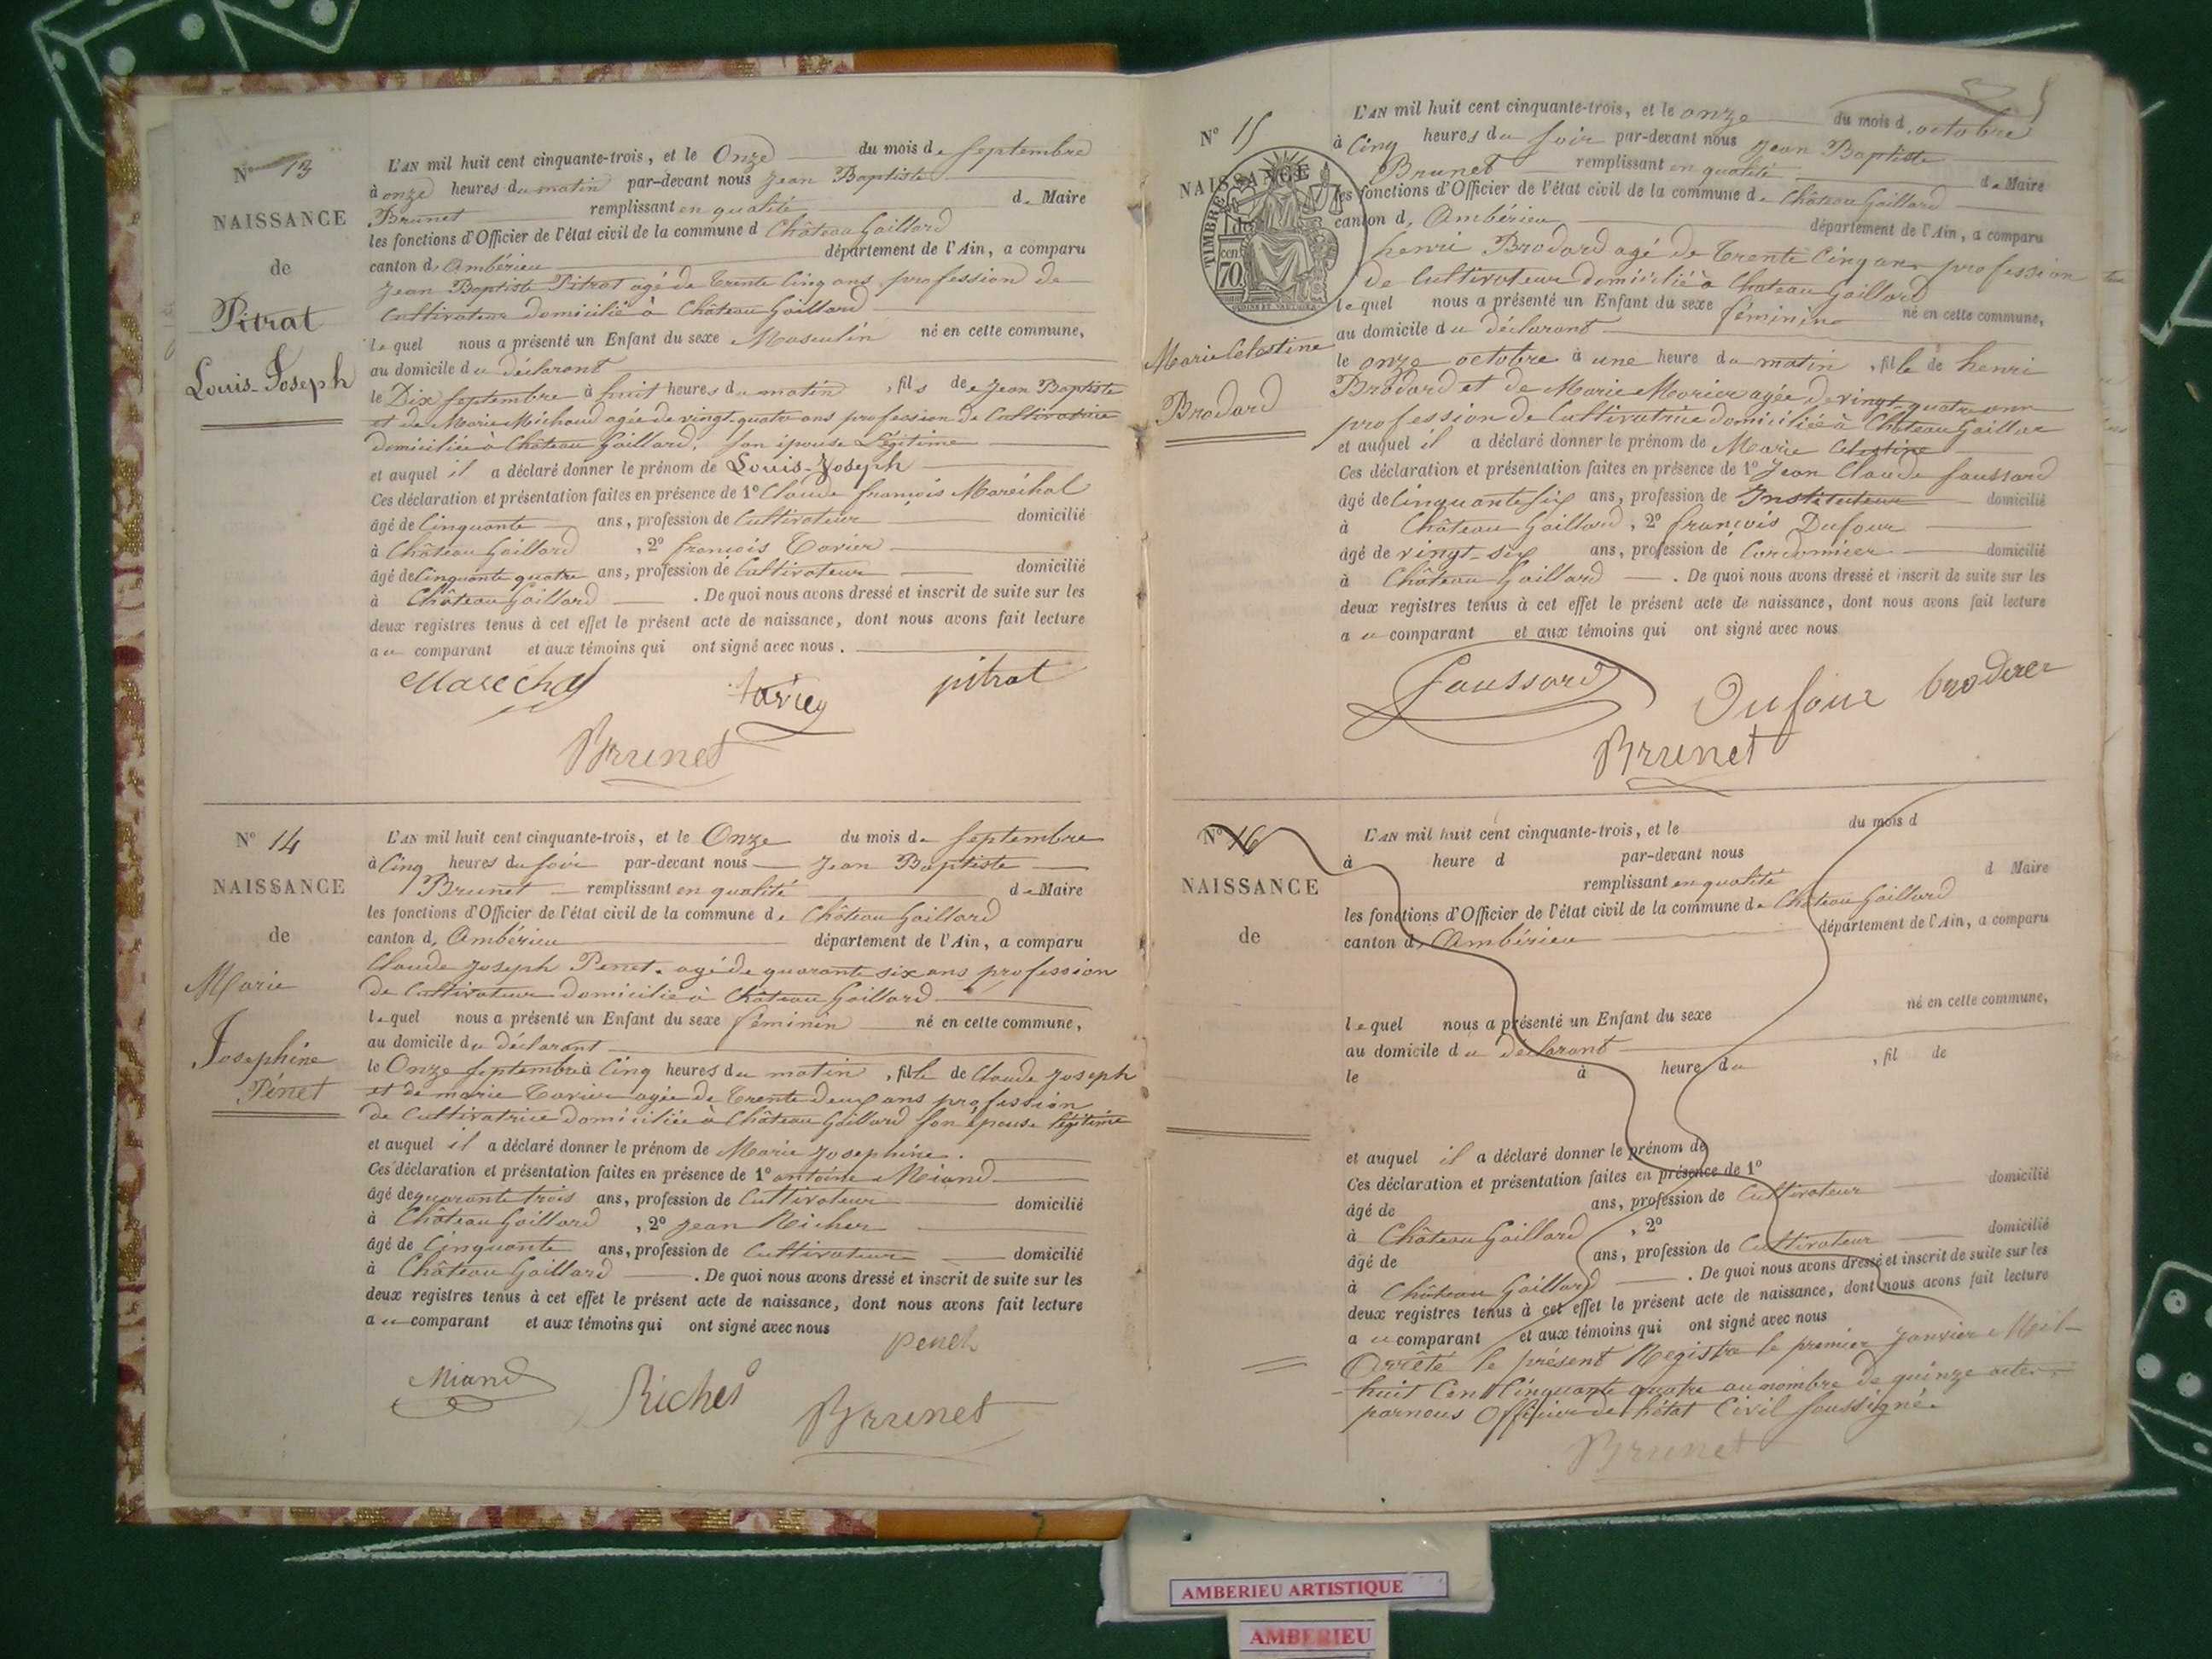 N° 13
NAISSANCE
de
Pitrat
Louis-Joseph
L'AN mil huit cent cinquante-trois, et le Onze du mois de septembre
à onze heures du matin par-devant nous Jean Baptiste
Brunet remplissant en qualité de Maire
les fonctions d'Officier de l'état civil de la commune d Château Gaillard
canton d'Ambérieu département de l'Ain, a comparu
Jean Baptiste Pitrat agé de trente cinq ans profession de
Cultivateur domicilié à Château Gaillard
lequel nous a présenté un Enfant du sexe Masculin né en cette commune,
au domicile du déclarant
le Dix septembre à huit heures du matin, fils de Jean Baptiste
et de Marie Michaud agée de vingt-quatre ans profession de Cultivatrice
domiciliée à Château Gaillard, son épouse Légitime
et auquel il a déclaré donner le prénom de Louis-Joseph
Ces déclaration et présentation faites en présence de 1° Claude françois Maréchal
âgé de Cinquante ans, profession de Cultivateur domicilié
à Château Gaillard, 2° françois Tavier
âgé de Cinquante quatre ans, profession de Cultivateur domicilié
à Château Gaillard. De quoi nous avons dressé et inscrit de suite sur les
deux registres tenus à cet effet le présent acte de naissance, dont nous avons fait lecture
au comparant et aux témoins qui ont signé avec nous.
Marechal pitrat
Brunet
N° 14
NAISSANCE
de
Marie
Josephine
Pénet
L'AN mil huit cent cinquante-trois, et le Onze du mois de septembre
à Cinq heures du soir par-devant nous Jean Baptiste
Brunet remplissant en qualité de Maire
les fonctions d'Officier de l'état civil de la commune de Château Gaillard
canton d'Ambérieu département de l'Ain, a comparu
Claude Joseph Penet agé de quarante six ans profession
de Cultivateur domicilié à Château Gaillard
lequel nous a présenté un Enfant du sexe féminin né en cette commune,
au domicile du déclarant
le Onze septembre à Cinq heures du matin, fille de Claude Joseph
et de marie Tavier agée de trente deux ans profession
de Cultivatrice domiciliée à Château Gaillard son épouse légitime
et auquel il a déclaré donner le prénom de Marie Josephine.
Ces déclaration et présentation faites en présence de 1° antoine Miand
âgé de quarante trois ans, profession de Cultivateur domicilié
à Château Gaillard, 2° Jean Richer
âgé de Cinquante ans, profession de Cultivateur domicilié
à Château Gaillard. De quoi nous avons dressé et inscrit de suite sur les
deux registres tenus à cet effet le présent acte de naissance, dont nous avons fait lecture
au comparant et aux témoins qui ont signé avec nous
Miand Brunet
N° 15
NAISSANCE
de
TIMBRE
70
Marie Celestine
Brodard
L'AN mil huit cent cinquante-trois, et le onze du mois d'octobre
à Cinq heures du soir par-devant nous Jean Baptiste
Brunet remplissant en qualité de Maire
les fonctions d'Officier de l'état civil de la commune de Château Gaillard
canton d'Ambérieu département de l'Ain, a comparu
henri Brodard agé de trente Cinq ans profession
de Cultivateur domicilié à Chateau Gaillard
lequel nous a présenté un Enfant du sexe féminin né en cette commune,
au domicile du déclarant
le onze octobre à une heure du matin, fille de henri
Brodard et de Marie Morier agée de vingt quatre ans
profession de Cultivatrice domiciliée à Château Gaillar
et auquel il a déclaré donner le prénom de Marie Celestine
Ces déclaration et présentation faites en présence de 1° Jean Claude faussard
âgé de Cinquante six ans, profession de Instituteur domicilié
à Château Gaillard, 2° françois Dufour
âgé de vingt-six ans, profession de Cordonnier domicilié
à Château Gaillard. De quoi nous avons dressé et inscrit de suite sur les
deux registres tenus à cet effet le présent acte de naissance, dont nous avons fait lecture
au comparant et aux témoins qui ont signé avec nous
faussard Dufour
Brunet
N° 16
NAISSANCE
de
L'AN mil huit cent cinquante-trois, et le du mois d
à heure d par-devant nous
remplissant en qualité d Maire
les fonctions d'Officier de l'état civil de la commune de Château Gaillard
canton d'Ambérieu département de l'Ain, a comparu
lequel nous a présenté un Enfant du sexe né en cette commune,
au domicile du declarant
le à heure du , fil de
et auquel il a déclaré donner le prénom de
Ces déclaration et présentation faites en présence de 1°
âgé de ans, profession de Cultivateur domicilié
à Château Gaillard, 2°
âgé de ans, profession de Cultivateur domicilié
à Château Gaillard. De quoi nous avons dressé et inscrit de suite sur les
deux registres tenus à cet effet le présent acte de naissance, dont nous avons fait lecture
au comparant et aux témoins qui ont signé avec nous
Arrêté le présent Registre le premier Janvier Mil
huit Cent Cinquante quatre au nombre de quinze actes
par nous Officier de l'état Civil soussigné.
Brunet
AMBERIEU ARTISTIQUE
AMBERIEU